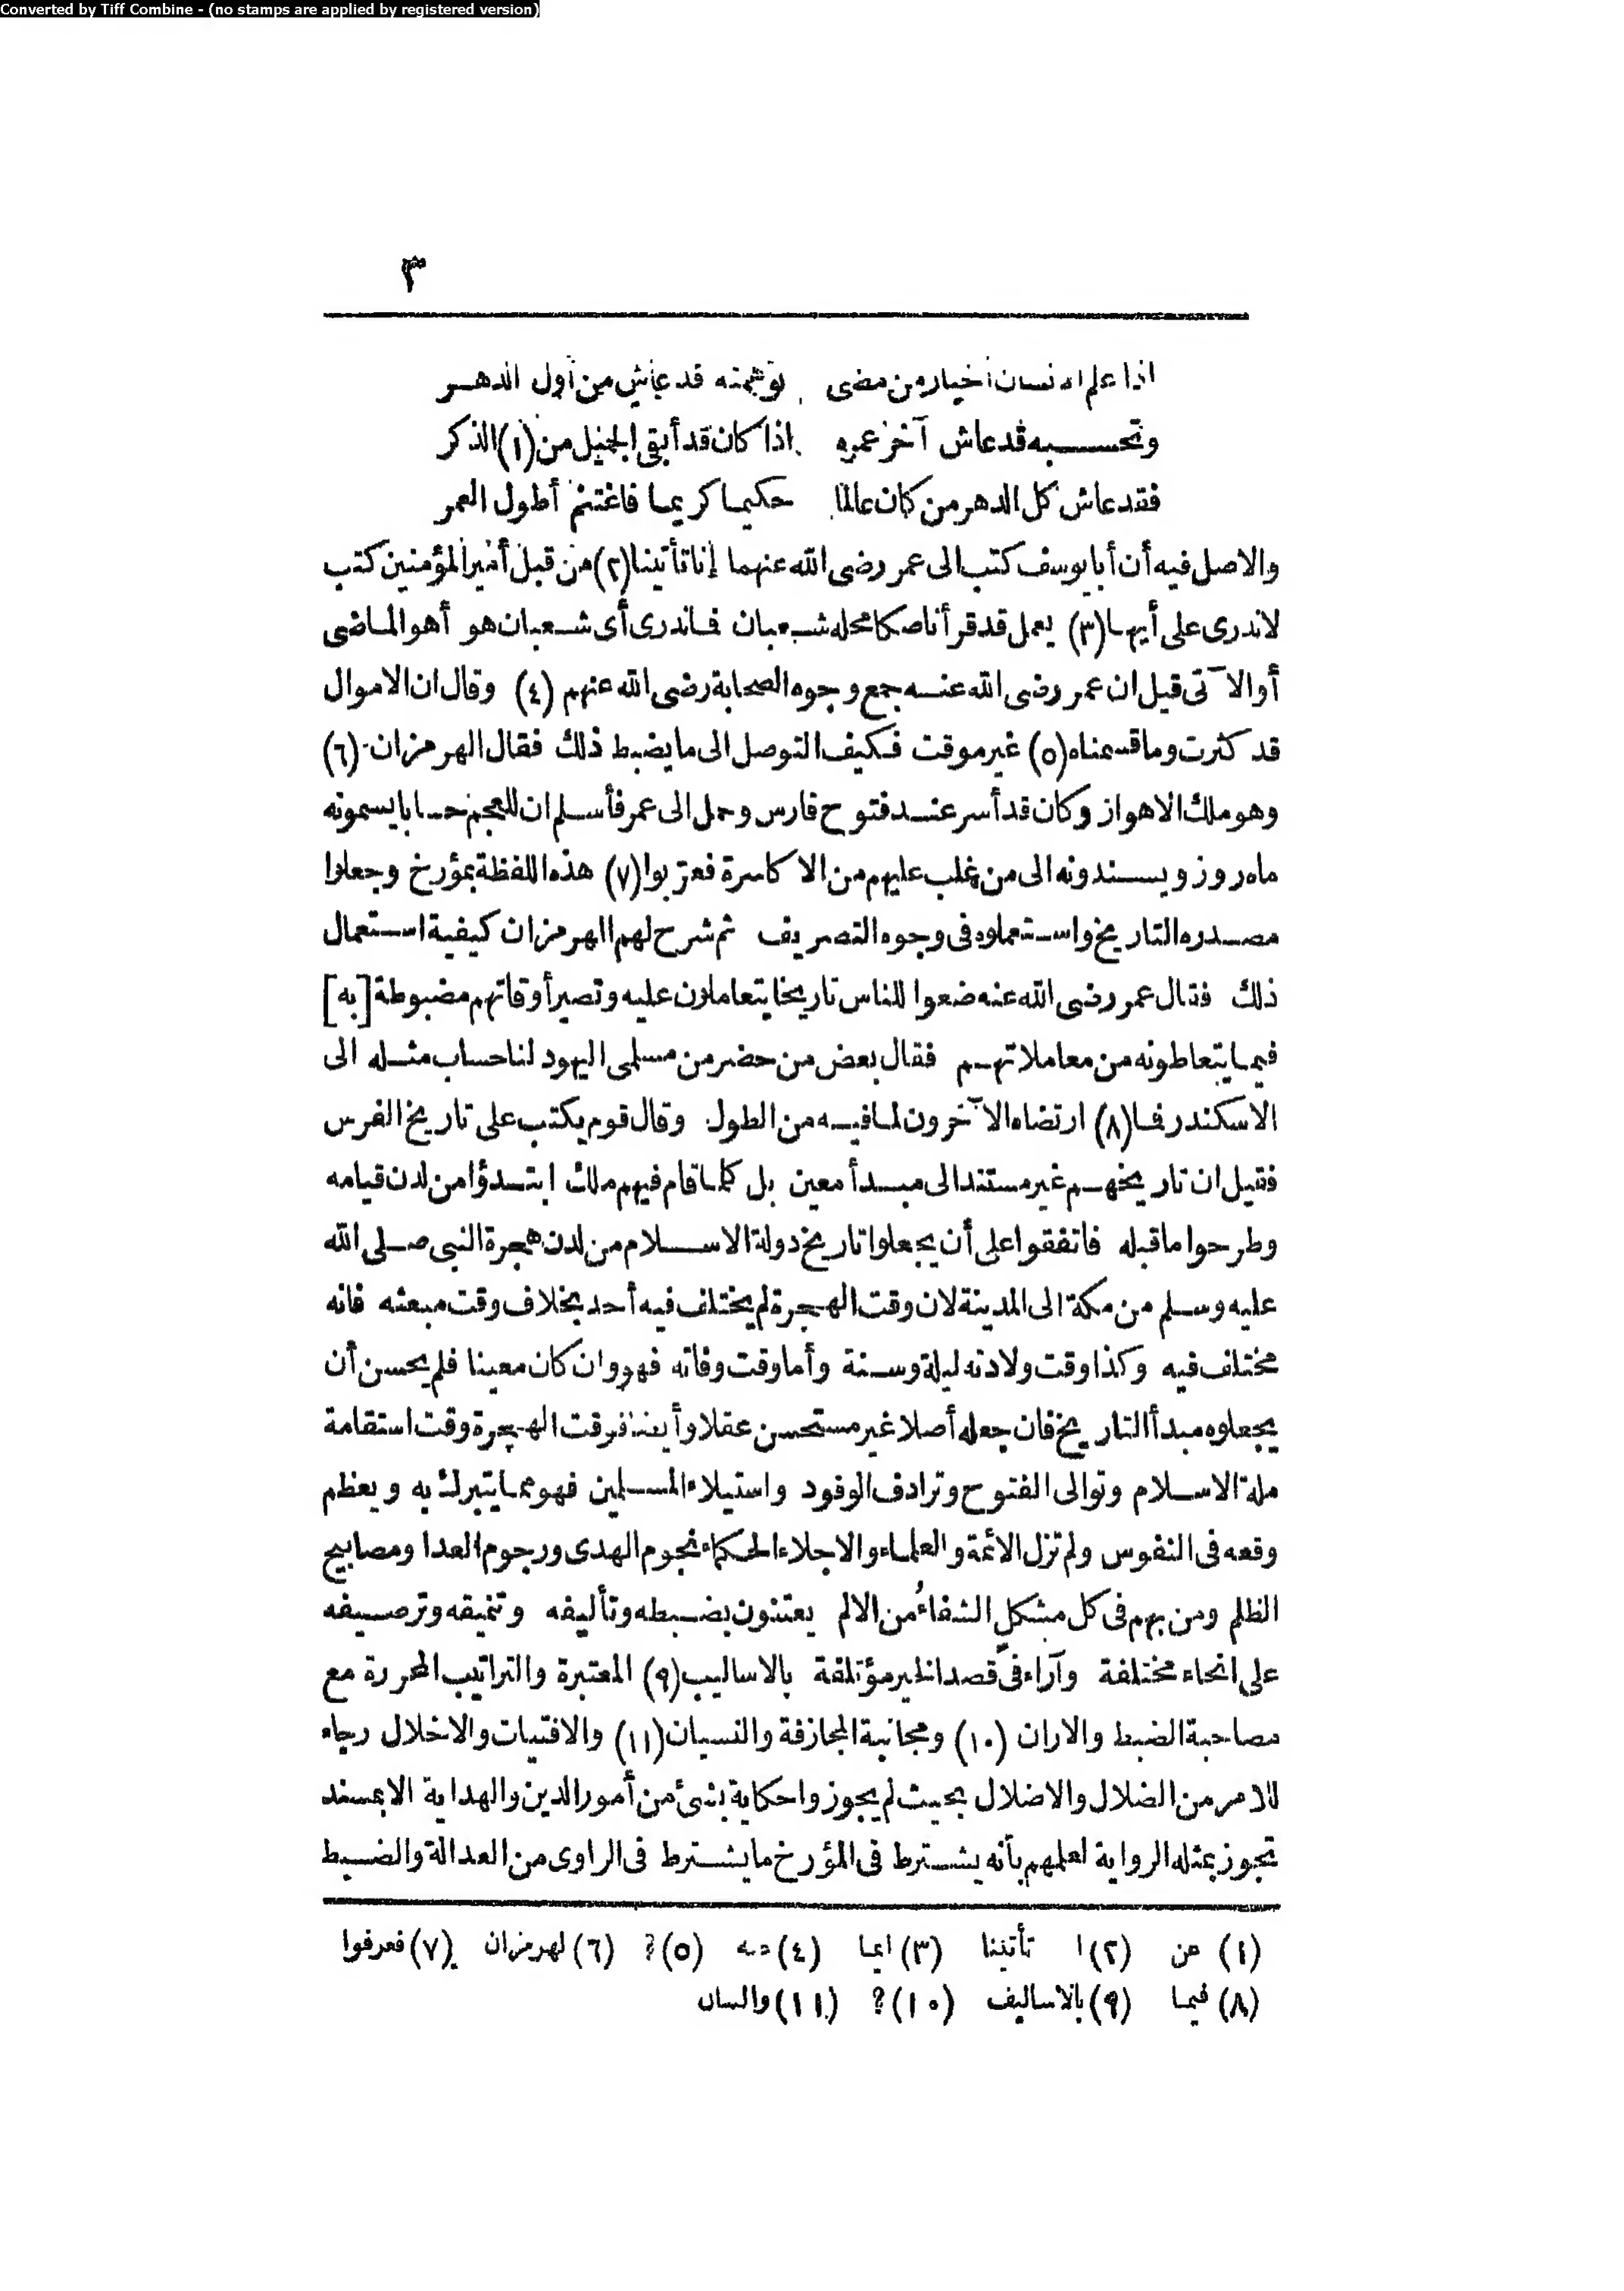 Converted by Tiff Combine - (no stamps are applied by registered version)
٣
اذا علم الانسان أخبار من مضى توهمته قد عاش من أول الدهر
وتحسبه قد عاش آخر عمره اذا كان قد أبقى الجميل من (١) الذكر
فقد عاش كل الدهر من كان عالما حكيما كريما فاغتنم أطول العمر
والاصل فيه أن أبا يوسف كتب الى عمر رضى الله عنهما إنا تأتينا (٢) من قبل أمير المؤمنين كتب
لا ندرى على أيها (٣) يعمل قد قرأنا صكا محله شعبان فما ندرى أى شعبان هو أهو الماضى
أو الآتى قيل ان عمر رضى الله عنه جمع وجوه الصحابة رضى الله عنهم (٤) وقال ان الاموال
قد كثرت وما قسمناه (٥) غير موقت فكيف التوصل الى ما يضبط ذلك فقال الهرمزان (٦)
وهو ملك الاهواز وكان قد أسر عند فتوح فارس وحمل الى عمر فأسلم ان للعجم حسابا يسمونه
ماه روز ويسندونه الى من غلب عليهم من الاكاسرة فعربوا (٧) هذه اللفظة بمؤرخ وجعلوا
مصدره التاريخ واستعملوه فى وجوه التصريف ثم شرح لهم الهرمزان كيفية استعمال
ذلك فقال عمر رضى الله عنه ضعوا للناس تاريخا يتعاملون عليه وتصير أوقاتهم مضبوطة [به]
فيما يتعاطونه من معاملاتهم فقال بعض من حضر من مسلمى اليهود لنا حساب مثله الى
الاسكندر فما (٨) ارتضاه الآخرون لما فيه من الطول وقال قوم يكتب على تاريخ الفرس
فقيل ان تاريخهم غير مستند الى مبدأ معين بل كلما قام فيهم ملك ابتدؤا من لدن قيامه
وطرحوا ما قبله فاتفقوا على أن يجعلوا تاريخ دولة الاسلام من لدن هجرة النبى صلى الله
عليه وسلم من مكة الى المدينة لان وقت الهجرة لم يختلف فيه أحد بخلاف وقت مبعثه فانه
مختلف فيه وكذا وقت ولادته ليلة وسنة وأما وقت وفاته فهو وان كان معينا فلم يحسن أن
يجعلوه مبدأ التاريخ فان جعله أصلا غير مستحسن عقلا وأيضا فوقت الهجرة وقت استقامة
ملة الاسلام وتوالى الفتوح وترادف الوفود واستيلاء المسلمين فهو مما يتبرك به ويعظم
وقعه فى النفوس ولم تزل الائمة والعلماء والاجلاء الحكماء نجوم الهدى ورجوم العدا ومصابيح
الظلم ومن بهم فى كل مشكل الشفاء من الالم يعتنون بضبطه وتأليفه وتنميقه وترصيفه
على انحاء مختلفة وآراء فى قصد الخير مؤتلفة بالاساليب (٩) المعتبرة والتراتيب المحررة مع
مصاحبة الضبط والاران (١٠) ومجانبة المجازفة والنسيان (١١) والافتيات والاخلال رجاء
للامر من الضلال والاضلال بحيث لم يجوزوا حكاية بشئ من أمور الدين والهداية الا بمسند
تجوز بمثله الرواية لعلمهم بأنه يشترط فى المؤرخ ما يشترط فى الراوى من العدالة والضبط
(١) عن (٢) ا تأتيننا (٣) ايما (٤) (٥) ? (٦) لهرمزان (٧) فعرفوا
(٨) فيما (٩) بالاساليف (١٠) ? (١١) والسان